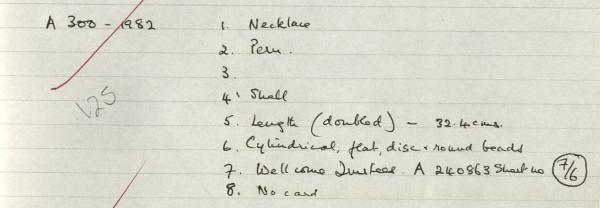 A 300 - 1982
1. Necklace
2. Peru.
3.
4. Shell
5. Length (doubled) - 32.4 cms.
6. Cylindrical, flat, disc + round beads
7. Wellcome Trustees. A 240863 Sheet no 7/6
8. No card
V25